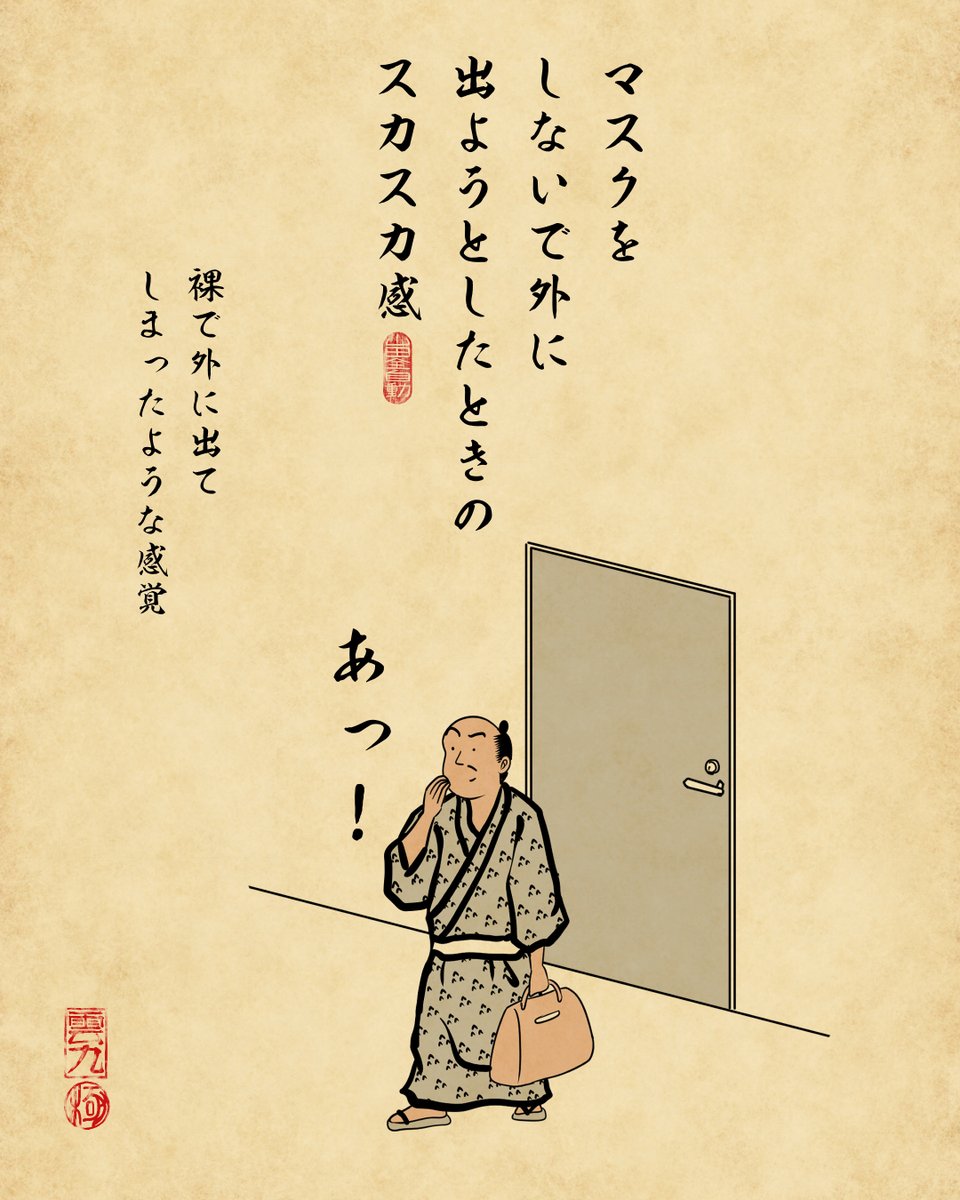 マスクを
しないで外に
出ようとしたときの
スカスカ感
裸で外に出て
しまったような感覚
あっ！